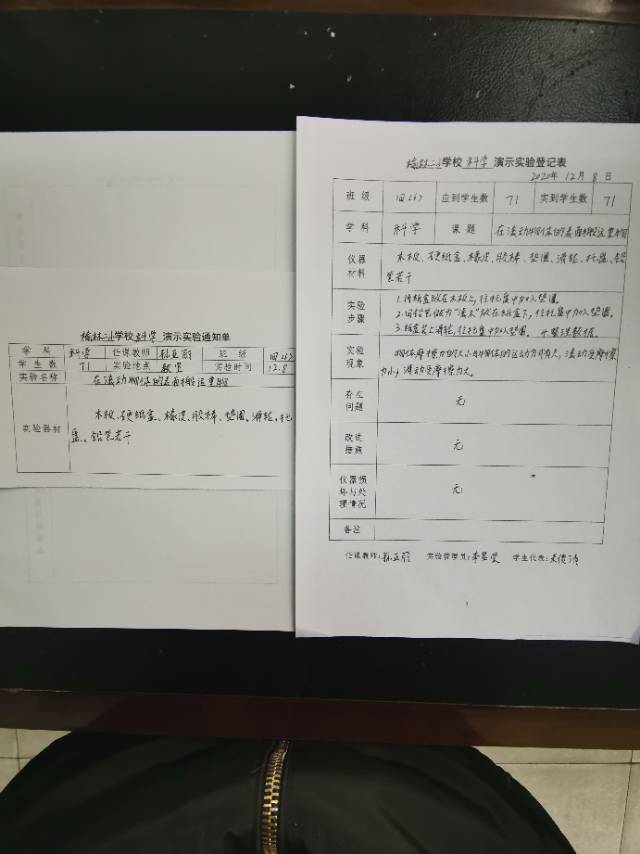 学校 科学 演示实验通知单
学科 科学 任课教师 孙亚丽 班级 四(7)
学生数 71 实验地点 教室 实验时间 12.8
实验名称 在滚动物体的表面搬运重物
实验器材 木板、硬纸盒、橡皮、胶棒、垫圈、滑轮、托
盘、铅笔若干
学校 科学 演示实验登记表
2020年12月8日
班级 四(7) 应到学生数 71 实到学生数 71
学科 科学 课题 在滚动物体的表面搬运重物
仪器材料 木板、硬纸盒、橡皮、胶棒、垫圈、滑轮、托盘、铅
笔若干
实验步骤 1.将纸盒放在木板上,往托盘中加入垫圈。
2.用铅笔做为"滚木"放在纸盒下,往托盘中加入垫圈。
3.纸盒装上滑轮,往托盘中加入垫圈。 4.整理数据。
实验现象 物体摩擦力的大小与物体的运动方式有关,滚动受摩擦
力小,滑动受摩擦力大。
存在问题 无
改进措施 无
仪器损坏与处理情况 无
备注
任课教师:孙亚丽 实验管理员: 学生代表: